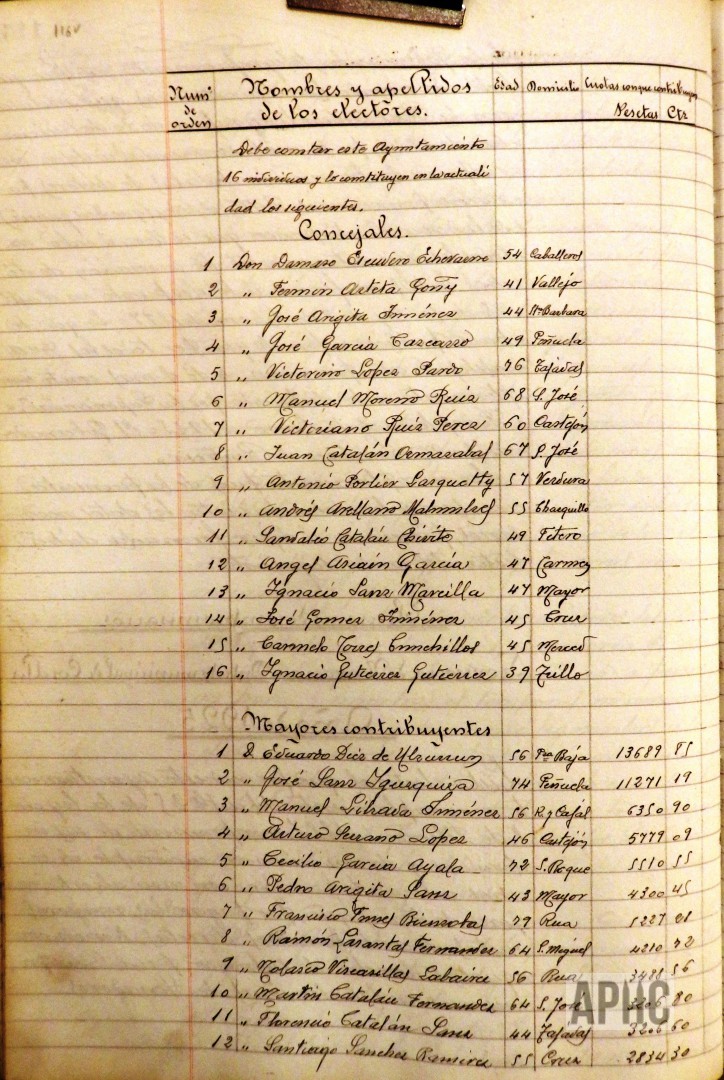 116v
Num.º de orden Nombres y apellidos de los electores. Edad Domicilio Cuotas con que contribuyen Pesetas Cts
Debe constar este Ayuntamiento
16 individuos y lo constituyen en la actuali
dad los siguientes.
Concejales.
1 Don Damaso Escudero Echeverria 54 Caballeros
2 " Fermin Arteta Goñy 41 Vallejo
3 " José Arigita Jiménez 44 Sta Barbara
4 " José Garcia Carcarro 49 Peñuela
5 " Victorino Lopez Pardo 76 Tajadas
6 " Manuel Moreno Ruiz 68 S. José
7 " Victoriano Ruiz Perez 60 Castejón
8 " Juan Catalán Ormazabal 67 S. José
9 " Antonio Porlier 57 Verdura
10 " Andrés Arellano 55 Charquillo
11 " Sandalio Catalán Chivite 49 Fitero
12 " Angel Asiain García 47 Carmen
13 " Ignacio Sanz Marcilla 47 Mayor
14 " José Gomez Jiménez 45 Cruz
15 " Carmelo Torres Cunchillos 45 Merced
16 " Ignacio Gutierrez Gutiérrez 39 Trillo
Mayores contribuyentes
1 D. Eduardo Diez de Ulzurrun 56 Pza Baja 13689 85
2 " José Sanz 74 Peñuela 11271 19
3 " Manuel Librada Jiménez 56 R. y Cajal 6350 90
4 " Arturo Serrano Lopez 46 Castejón 5779 09
5 " Cecilio Garcia Ayala 72 S. Roque 5510 55
6 " Pedro Arigita Sanz 43 Mayor 4300 45
7 " Francisco Funes Bienzobas 79 Rua 5227 01
8 " Ramón Lasantas Fernandez 64 S. Miguel 4210 72
9 " Nolasco Vizcasillas Labaira 56 Rua 3481 56
10 " Martin Catalán Fernandez 64 S. José 3206 80
11 " Florencio Catalán Sanz 44 Tajadas 3206 60
12 " Santiago Sanchez Ramirez 55 Cruz 2834 30
APHC